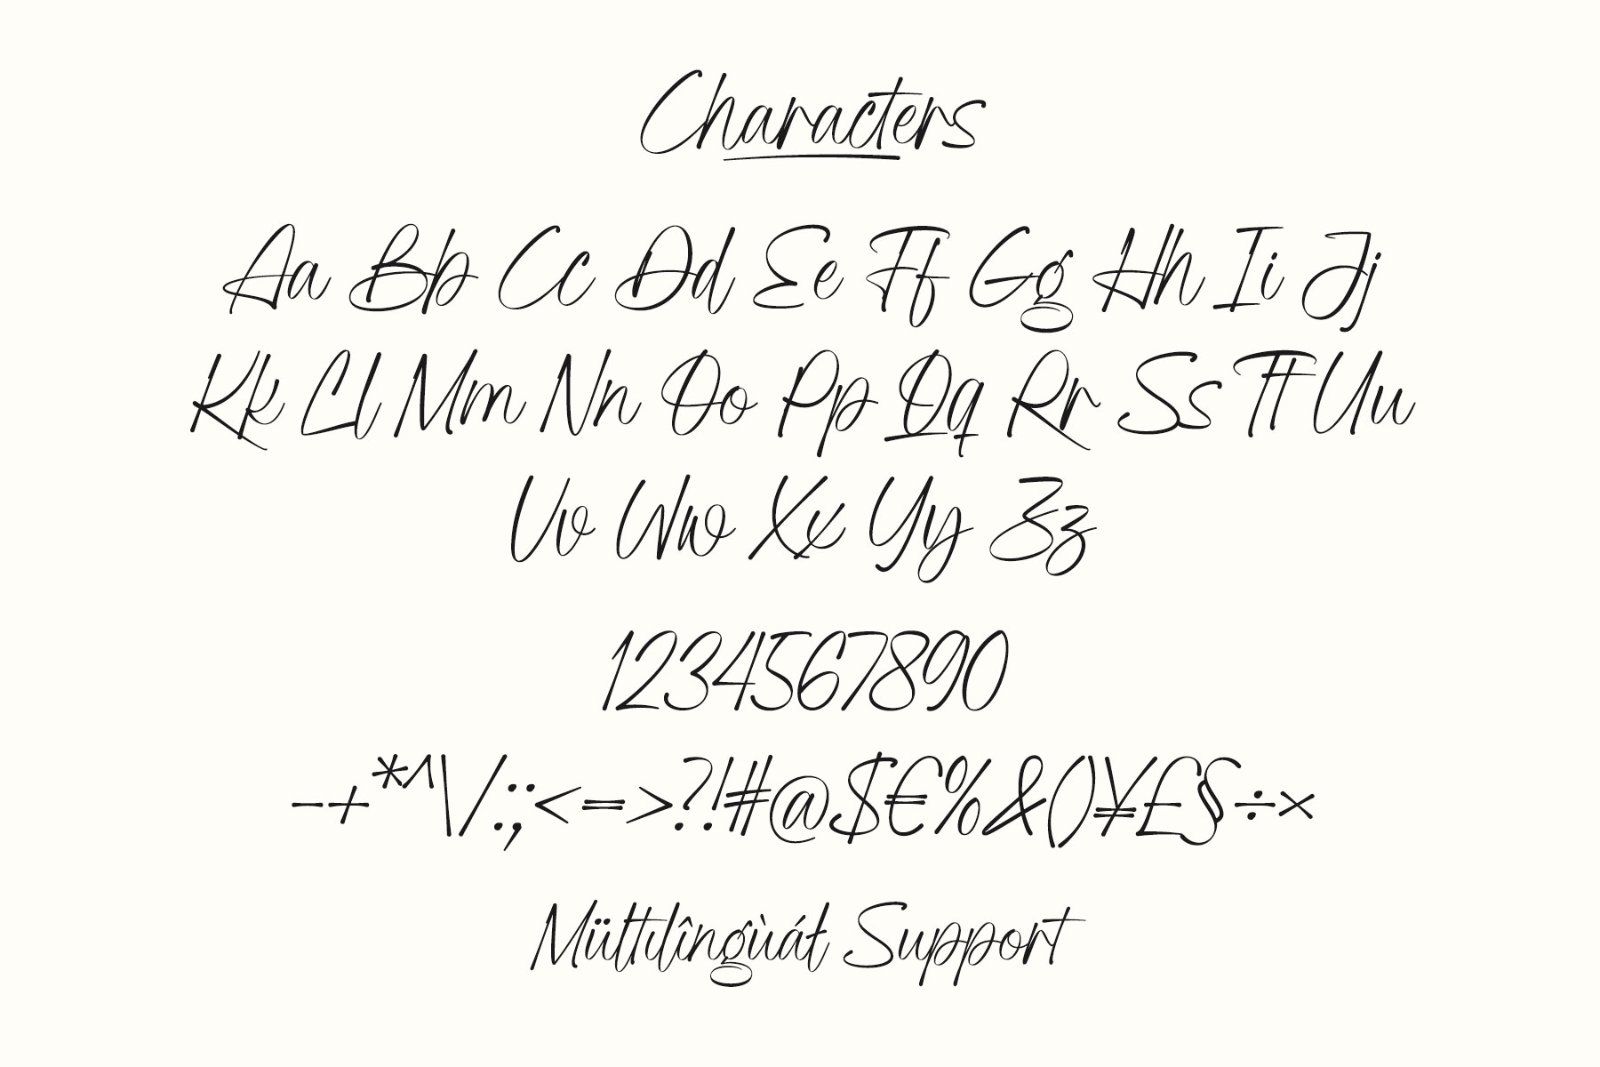 Characters
Aa Bb Cc Dd Ee Ff Gg Hh Ii Jj
Kk Ll Mm Nn Oo Pp Qq Rr Ss Tt Uu
Vv Ww Xx Yy Zz
1234567890
-+*^\/:;<=>?!#@$€%&()¥£§÷×
Mültılîngùáł Support